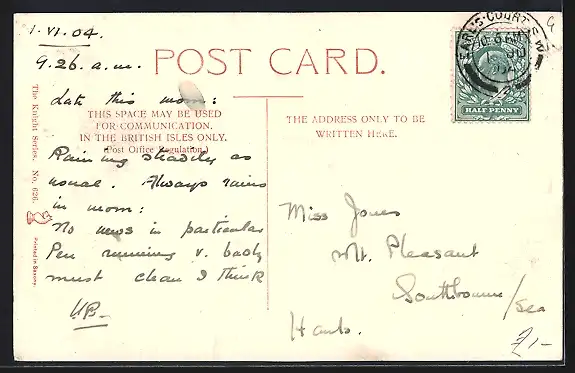 1.VI.04.
9.26. a.m.
POST CARD.
Late this morn:
THIS SPACE MAY BE USED
FOR COMMUNICATION.
IN THE BRITISH ISLES ONLY.
(Post Office Regulation.)
Raining steadily as
usual. Always rains
in morn:
No news in particular
Pen running v. badly
must clean I think
THE ADDRESS ONLY TO BE
WRITTEN HERE.
Miss Jones
Mt. Pleasant
Southbourne/Sea
Hants.
EARL'S COURT
HALF PENNY
The Knight Series. No. 626.
Printed in Saxony.